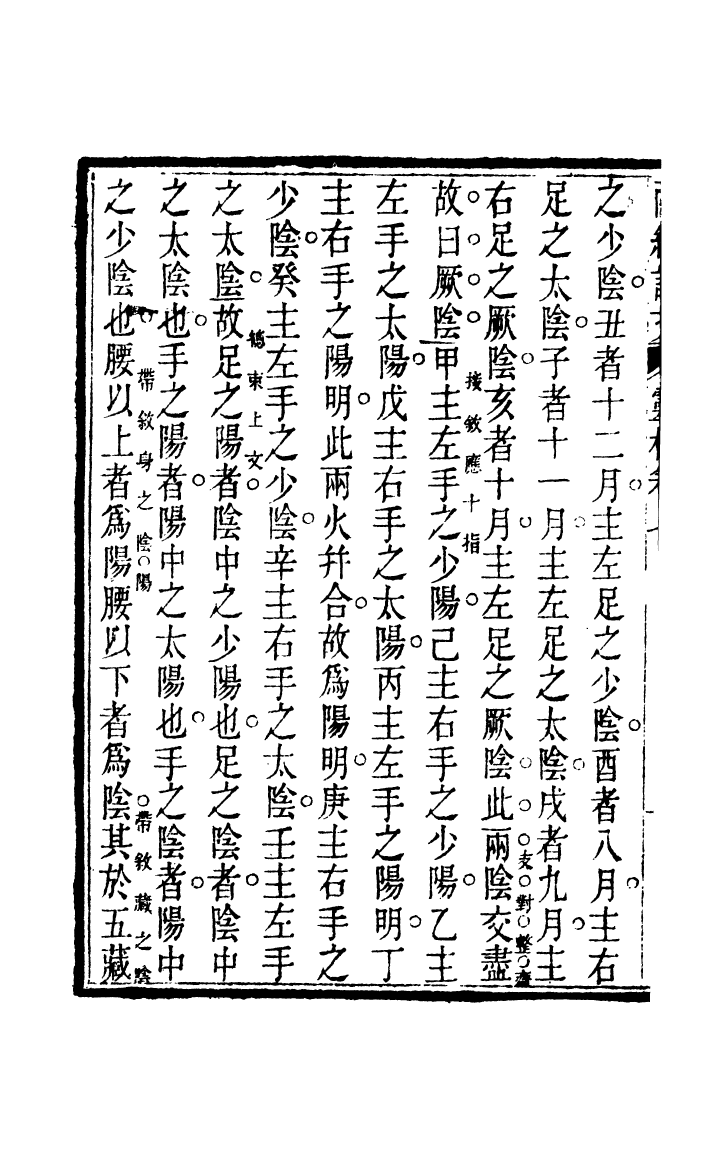 之少陰丑者十二月主左足之少陰酉者八月主右
足之太陰子者十一月主左足之太陰戌者九月主
右足之厥陰亥者十月主左足之厥陰此兩陰交盡
支對整齊
故曰厥陰甲主左手之少陽己主右手之少陽乙主
接敘應十指
左手之太陽戊主右手之太陽丙主左手之陽明丁
主右手之陽明此兩火并合故爲陽明庚主右手之
少陰癸主左手之少陰辛主右手之太陰壬主左手
之太陰故足之陽者陰中之少陽也足之陰者陰中
總束上文
之太陰也手之陽者陽中之太陽也手之陰者陽中
之少陰也腰以上者爲陽腰以下者爲陰其於五藏
帶敘身之陰陽
帶敘藏之陰